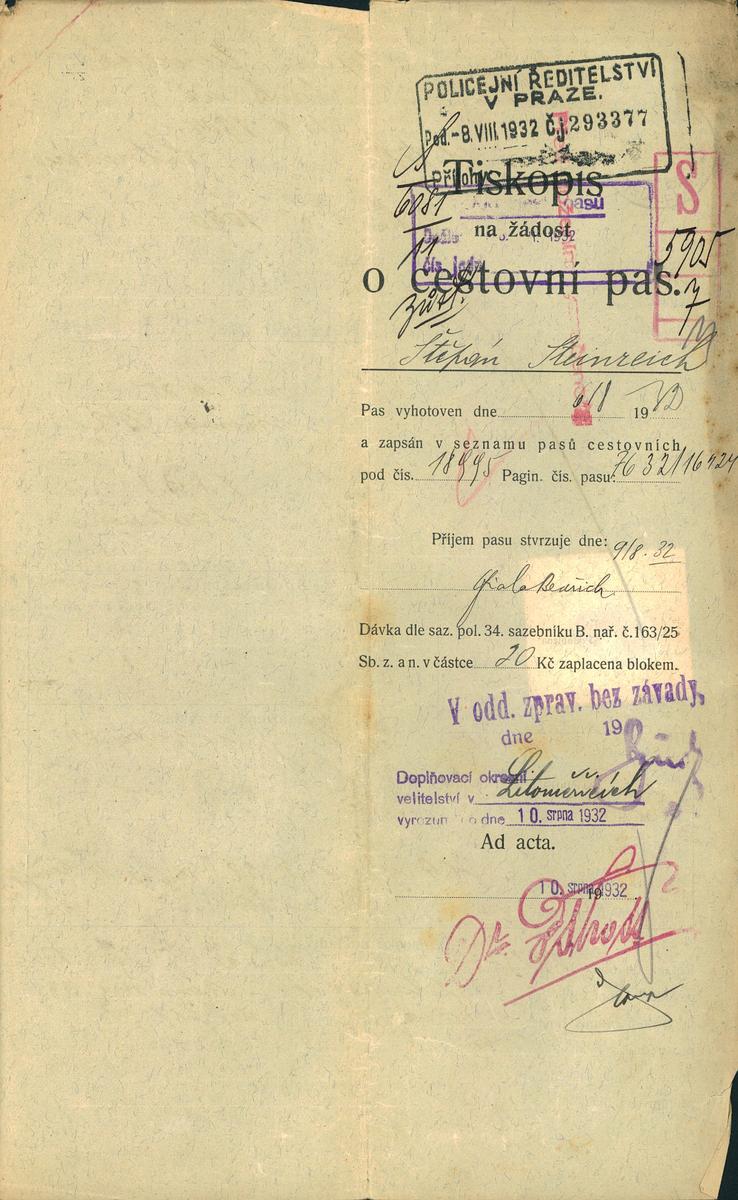 POLICEJNÍ ŘEDITELSTVÍ
V PRAZE.
Pod. -8. VIII. 1932 Č.j. 293377
Přílohy
Tiskopis
S
6081
11
pasu
na žádost
Došlo 1932
čís. jedn.
5905
o cestovní pas.
7
Štěpán Steinreich
Pas vyhotoven dne 6/8 19
a zapsán v seznamu pasů cestovních
pod čís. 18995 Pagin. čís. pasu: 7632/16424
Příjem pasu stvrzuje dne: 9/8. 32
Fiala Bedřich
Dávka dle saz. pol. 34. sazebníku B. nař. č. 163/25
Sb. z. a n. v částce 20 Kč zaplacena blokem.
V odd. zprav. bez závady,
dne 19
Doplňovací okresní
velitelství v Litoměřicích
dne 10. srpna 1932
Ad acta.
10. srpna 1932
19
Dr.